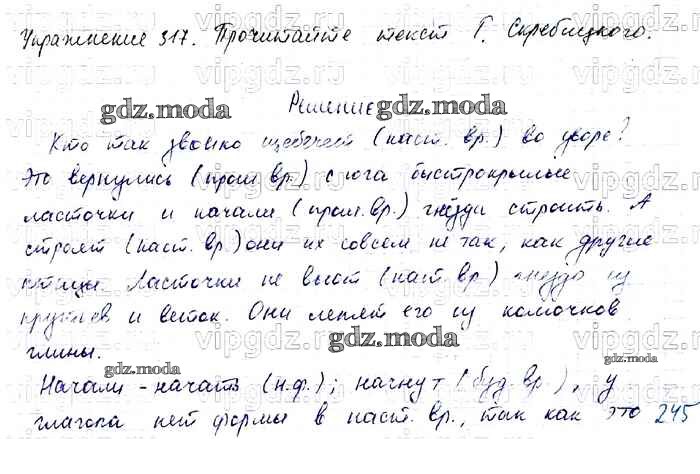 Упражнение 317. Прочитайте текст Г. Скребицкого.
Решение
gdz.moda
Кто так звонко щебечет (наст. вр.) во дворе?
Это вернулись (прош. вр.) с юга быстрокрылые
ласточки и начали (прош. вр.) гнёзда строить. А
строят (наст. вр.) они их совсем не так, как другие
птицы. Ласточки не вьют (наст. вр) гнездо из
прутьев и веток. Они лепят его из комочков
gdz.moda
глины.
gdz.moda
gdz.moda
Начали - начать (н.ф.); начнут (буд. вр.), у
глагола нет формы в наст. вр., так как это 245